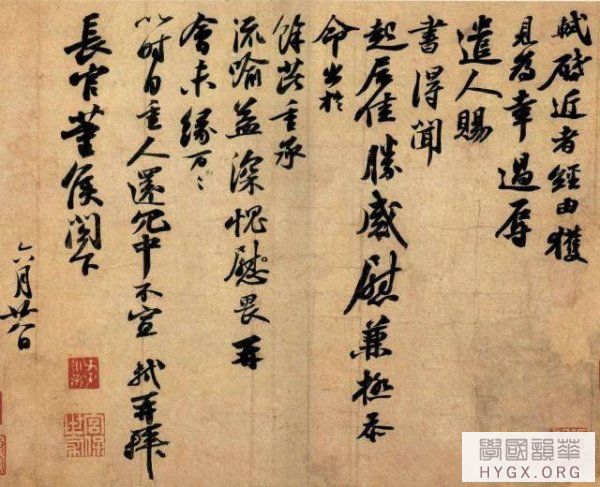 軾啓近者經由獲
見為幸過辱
遣人賜
書得聞
起居佳勝感慰兼極忝
命出於
餘芘重承
流喻益深愧慰畏再
會未緣万〻
以時自重人還冗中不宣 軾再拜
長官董侯閣下
六月廿八日
學國韻華
HYGX.ORG